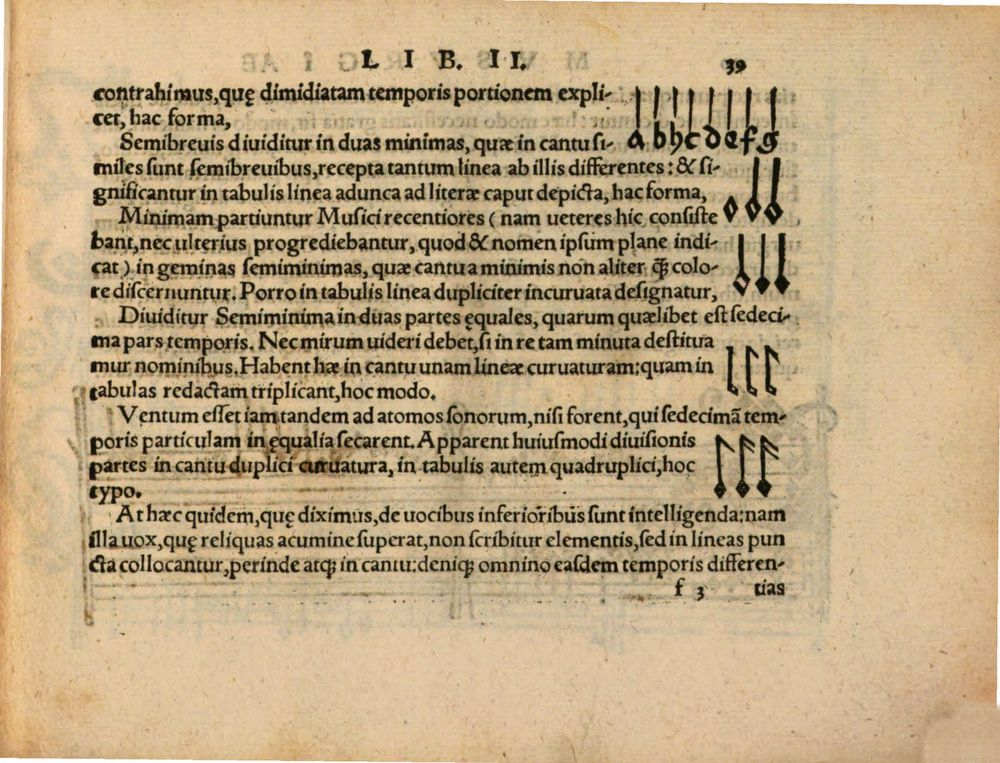 LIB. II. 39
contrahimus,quę dimidiatam temporis portionem expli-
cet, hac forma,
a b h c d e f g
Semibreuis diuiditur in duas minimas, quæ in cantu si-
miles sunt semibreuibus,recepta tantum linea ab illis differentes: & si-
gnificantur in tabulis linea adunca ad literæ caput depicta, hac forma,
Minimam partiuntur Musici recentiores ( nam ueteres hic consiste
bant,nec ulterius progrediebantur, quod & nomen ipsum plane indi-
cat ) in geminas semiminimas, quæ cantu a minimis non aliter q̃ꝫ colo-
re discernuntur. Porro in tabulis linea dupliciter incuruata designatur,
Diuiditur Semiminima in duas partes ęquales, quarum quælibet est sedeci-
ma pars temporis. Nec mirum uideri debet, si in re tam minuta destitua
mur nominibus. Habent hæ in cantu unam lineæ curuaturam: quam in
tabulas redactam triplicant, hoc modo.
Ventum esset iam tandem ad atomos sonorum, nisi forent, qui sedecimã tem-
poris particulam in ęqualia secarent. Apparent huiusmodi diuisionis
partes in cantu duplici curuatura, in tabulis autem quadruplici, hoc
typo.
At hæc quidem, quę diximus, de uocibus inferioribus sunt intelligenda: nam
illa uox, quę reliquas acumine superat, non scribitur elementis, sed in lineas pun
cta collocantur, perinde atqꝫ in cantu: deniqꝫ omnino easdem temporis differen-
f 3 tias